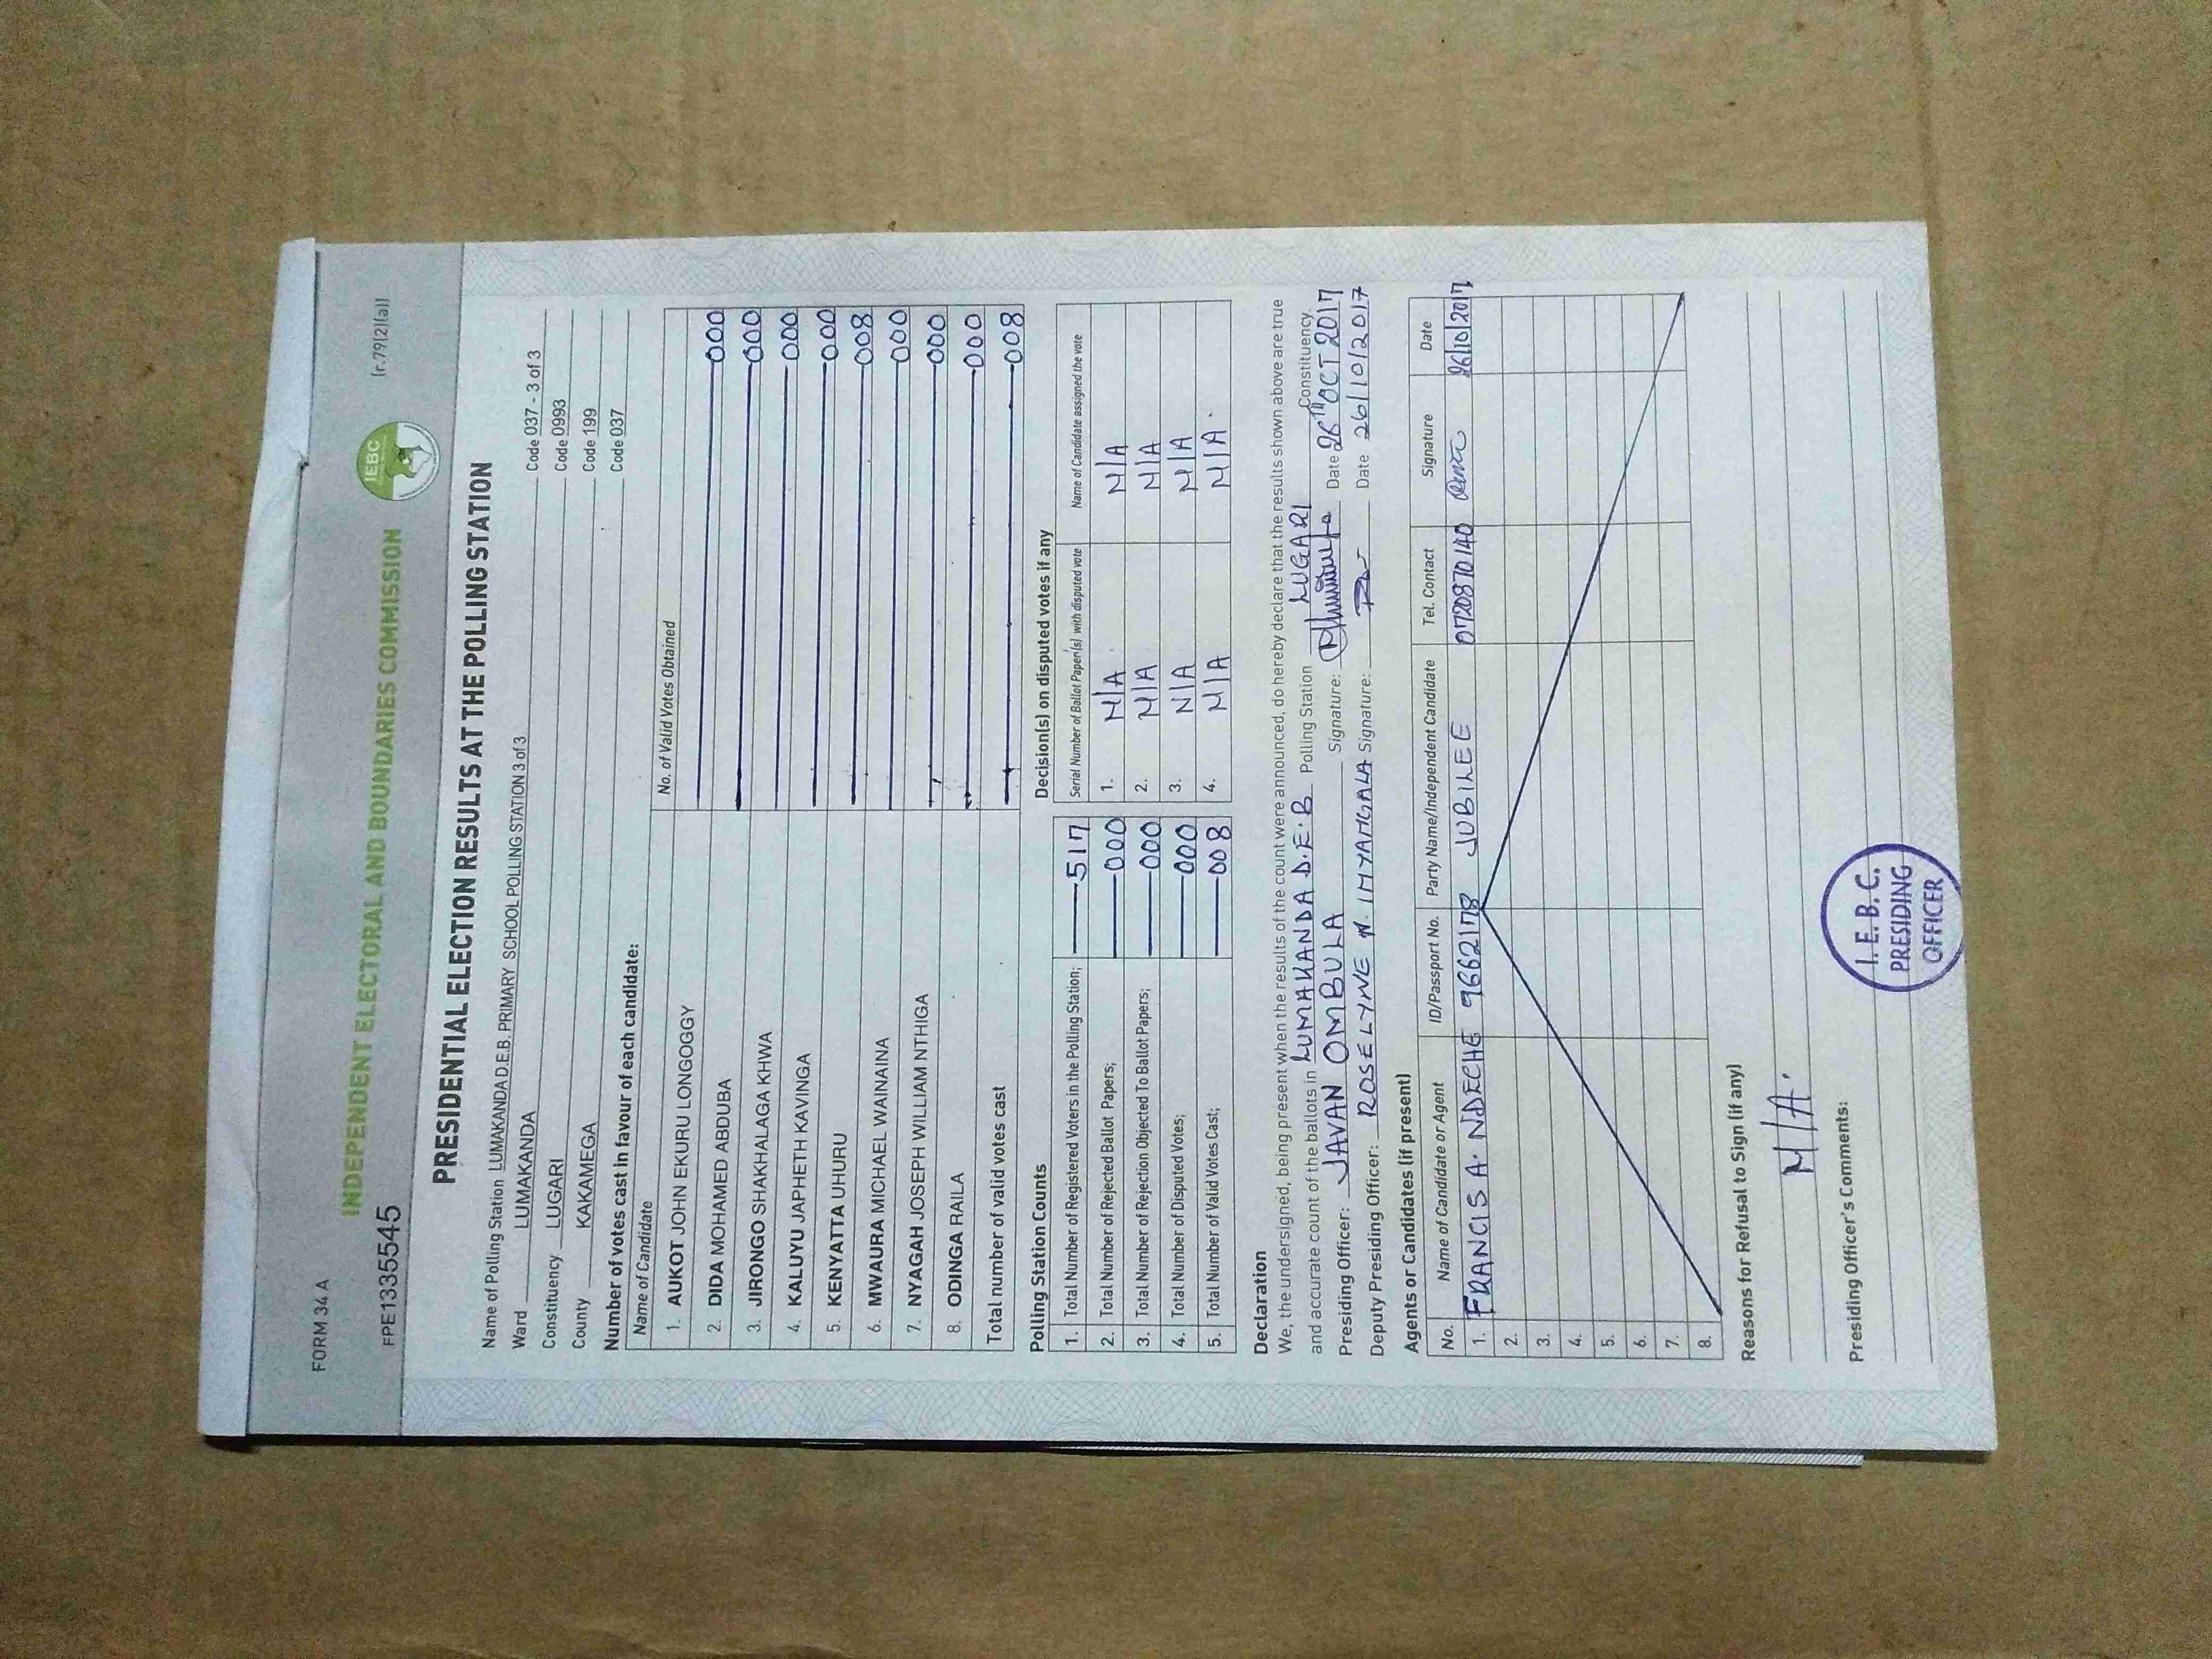 FORM 34 A
[r.79(2)(a)]
INDEPENDENT ELECTORAL AND BOUNDARIES COMMISSION
IEBC
FPE1335545
PRESIDENTIAL ELECTION RESULTS AT THE POLLING STATION
Name of Polling Station LUMAKANDA D.E.B. PRIMARY SCHOOL POLLING STATION 3 of 3 Code 037 - 3 of 3
Ward LUMAKANDA Code 0993
Constituency LUGARI Code 199
County KAKAMEGA Code 037
Number of votes cast in favour of each candidate:
Name of Candidate No. of Valid Votes Obtained
1. AUKOT JOHN EKURU LONGOGGY 000
2. DIDA MOHAMED ABDUBA 000
3. JIRONGO SHAKHALAGA KHWA 000
4. KALUYU JAPHETH KAVINGA 000
5. KENYATTA UHURU 008
6. MWAURA MICHAEL WAINAINA 000
7. NYAGAH JOSEPH WILLIAM NTHIGA 000
8. ODINGA RAILA 000
Total number of valid votes cast 008
Polling Station Counts
1. Total Number of Registered Voters in the Polling Station; 517
2. Total Number of Rejected Ballot Papers; 000
3. Total Number of Rejection Objected To Ballot Papers; 000
4. Total Number of Disputed Votes; 000
5. Total Number of Valid Votes Cast; 008
Decision(s) on disputed votes if any
Serial Number of Ballot Paper(s) with disputed vote Name of Candidate assigned the vote
1. N/A N/A
2. N/A N/A
3. N/A N/A
4. N/A N/A.
Declaration
We, the undersigned, being present when the results of the count were announced, do hereby declare that the results shown above are true
and accurate count of the ballots in LUMAKANDA D.E.B Polling Station LUGARI Constituency
Presiding Officer: JAVAN OMBULA Signature: Date 26TH OCT 2017
Deputy Presiding Officer: ROSELYNE N. Signature: Date 26/10/2017
Agents or Candidates (if present)
No. Name of Candidate or Agent ID/Passport No. Party Name/Independent Candidate Tel. Contact Signature Date
1. FRANCIS A. NDECHE 9662178 JUBILEE 0720870140 26/10/2017
2.
3.
4.
5.
6.
7.
8.
Reasons for Refusal to Sign (if any)
N/A.
Presiding Officer's Comments:
I.E.B.C.
PRESIDING
OFFICER